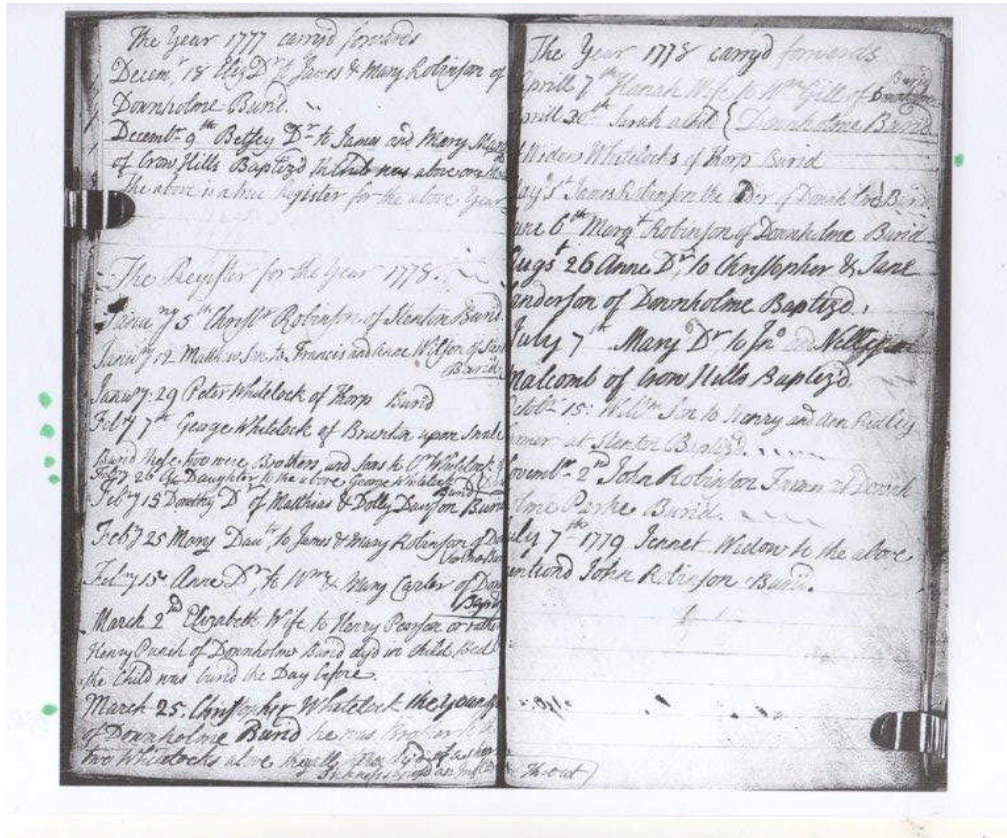 The Year 1777 carryd forwards
Decemr 18 Eliz Dr to James & Mary Robinson of
Downholme Buried
Decembr 9th Betsey Dr to James and Mary
of Crow Hills Baptizd the Child was above one
the above is a true Register for the above Year
The Register for the Year 1778.
Januy 5th Christr Robinson of Stenton Buried
Januy 12 Matthew Son to Francis and Anne Wilson of
Buried
Januy: 29 Peter Whitelock of Thorp Buried
Febry 7th George Whitelock of Brunton upon Swale
Buried these two were Brothers, and sons to Whitelock
Feby 26 Daughter to the above George Whitelock
Buried
Febry 15 Dorothy Dr of Matthias & Dolly Dawson Buried
Feby 25 Mary Daur, to James & Mary Robinson of
Febry 15th Anne Dr, to Wm & Mary Carter of
March 2nd Elizabeth Wife to Henry Pearson or rather
Henry Punch of Downholme Buried dyd in Child Bed
the Child was buried the Day before
March 25. Christopher Whitelock the
of Downholme Buried he was Brother to the
two Whitelocks above they all dyd of a
The Year 1778 carryd forwards
Aprill 7th Hanah Wife to Wm Gill of
Buried
Aprill 30th Sarah {Downholme Buried
Widow Whitelocks of Thorp Buried
James Robinson the Elder of Buried
June 6th Margt Robinson of Downholme Buried
Augst 26 Anne Dr, to Christopher & Jane
Anderson of Downholme Baptizd.
July 7 Mary Dr to Jno and
Malcomb of Crow Hills Baptizd
Octobr 15: Willm Son to Henry and Ann Ridley
at Stenton Baptizd.
Novembr 2nd John Robinson
Parke Buried.
July 7th 1779 Jennet Widow to the above
mentiond John Robinson Buried.
Throat)